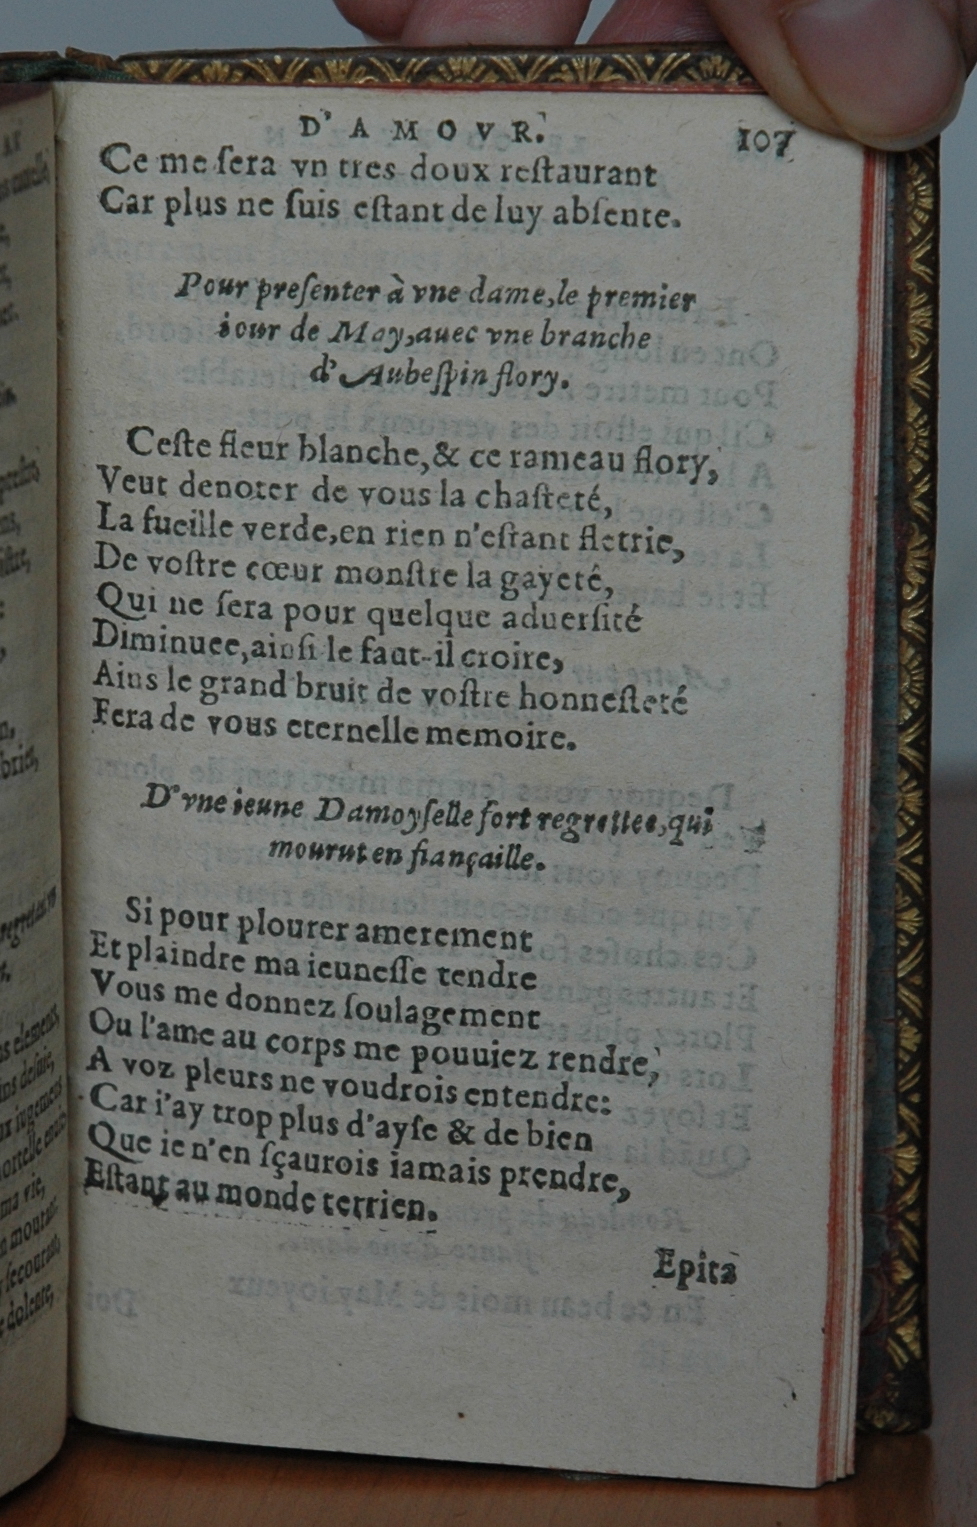 D'AMOVR.
107
Ce me ſera vn tres doux reſtaurant
Car plus ne ſuis eſtant de luy abſente.
Pour preſenter à vne dame, le premier
iour de May, auec vne branche
d'Aubeſpin flory.
Ceſte fleur blanche, & ce rameau flory,
Veut denoter de vous la chaſteté,
La fueille verde, en rien n'eſtant fletrie,
De voſtre cœur monſtre la gayeté,
Qui ne ſera pour quelque aduerſité
Diminuee, ainſi le faut-il croire,
Ains le grand bruit de voſtre honneſteté
Fera de vous eternelle memoire.
D'vne ieune Damoyſelle fort regrettee, qui
mourut en fiançaille.
Si pour plourer amerement
Et plaindre ma ieuneſſe tendre
Vous me donnez ſoulagement
Ou l'ame au corps me pouuiez rendre,
A voz pleurs ne voudrois entendre:
Car i'ay trop plus d'ayſe & de bien
Que ie n'en ſçaurois iamais prendre,
Eſtant au monde terrien.
Epita